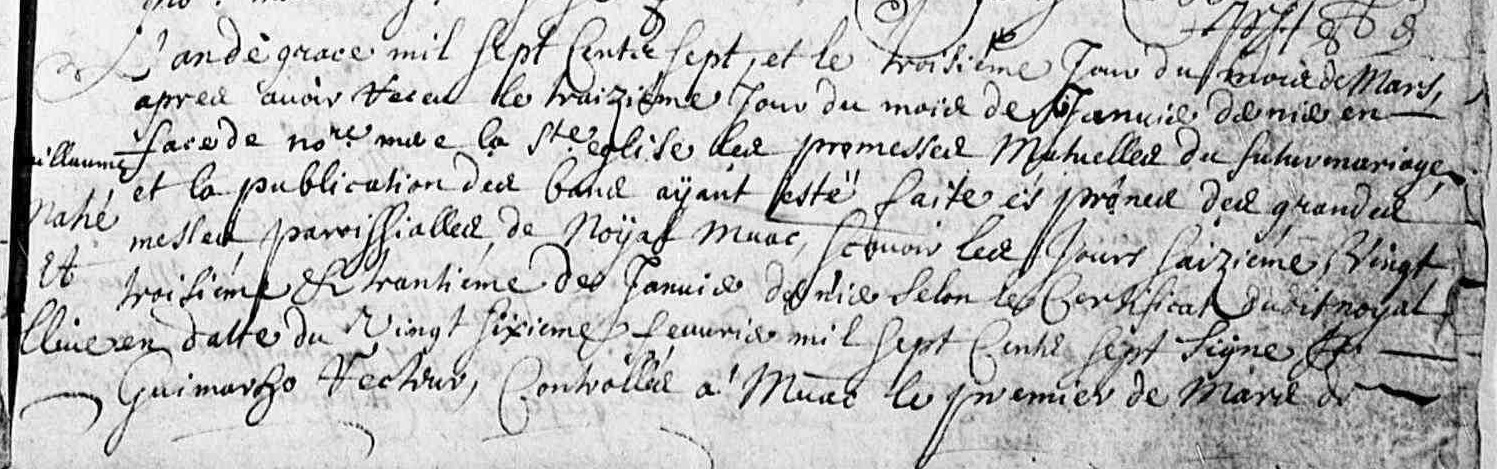 L'an de grace mil sept Cents sept, et le troisiéme Jour du mois de Mars,
apres avoir receu le traiziéme Jour du mois de Janvier dernier en
face de no.re mere la S.te eglise les promesses Mutuelles du futur mariage,
et la publication des bans aÿant esté faite és prônes des grandes
messes paroissialles de Noÿal Muac, scavoir les Jours saiziéme, Vingt
troisiéme & trantiéme de Janvier dernier selon le Certificat dudit noyal
en datte du Vingt sixiéme fevrier mil sept Cents sept Signe
Guimarho Recteur, Controllés a Muac le premier de Mars
illaume
Mahé
et